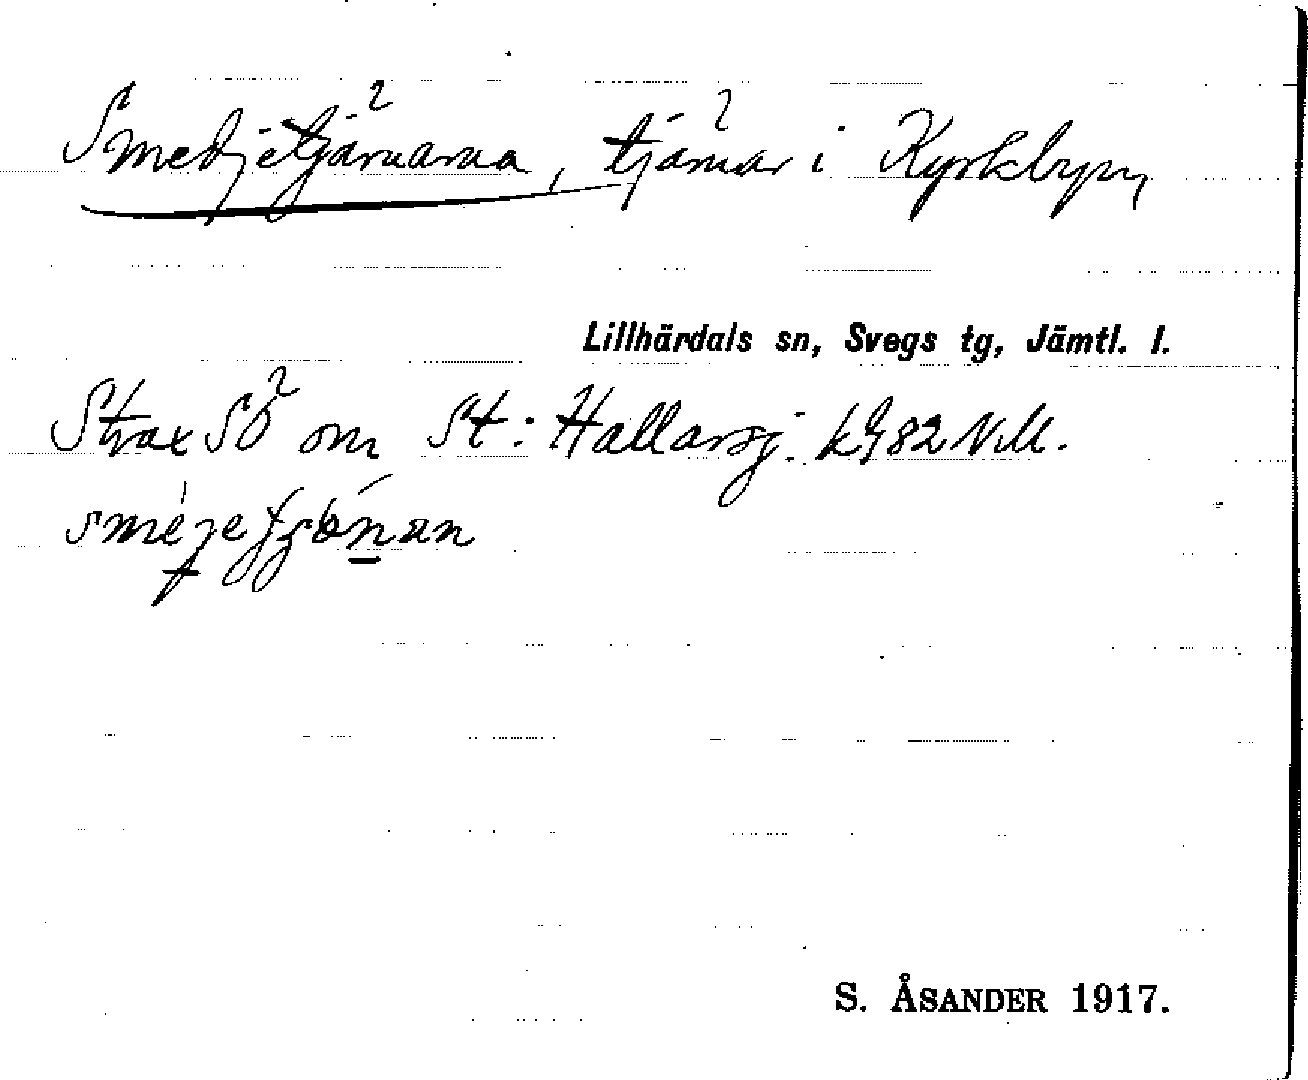 Smedjetjärnarna, tjärnar i Kyrkbyn,
Lillhärdals sn, Svegs tg, Jämtl. l.
Strax SÖ om St: Hallarsj. k982 N.M.
S. ÅSANDER 1917.